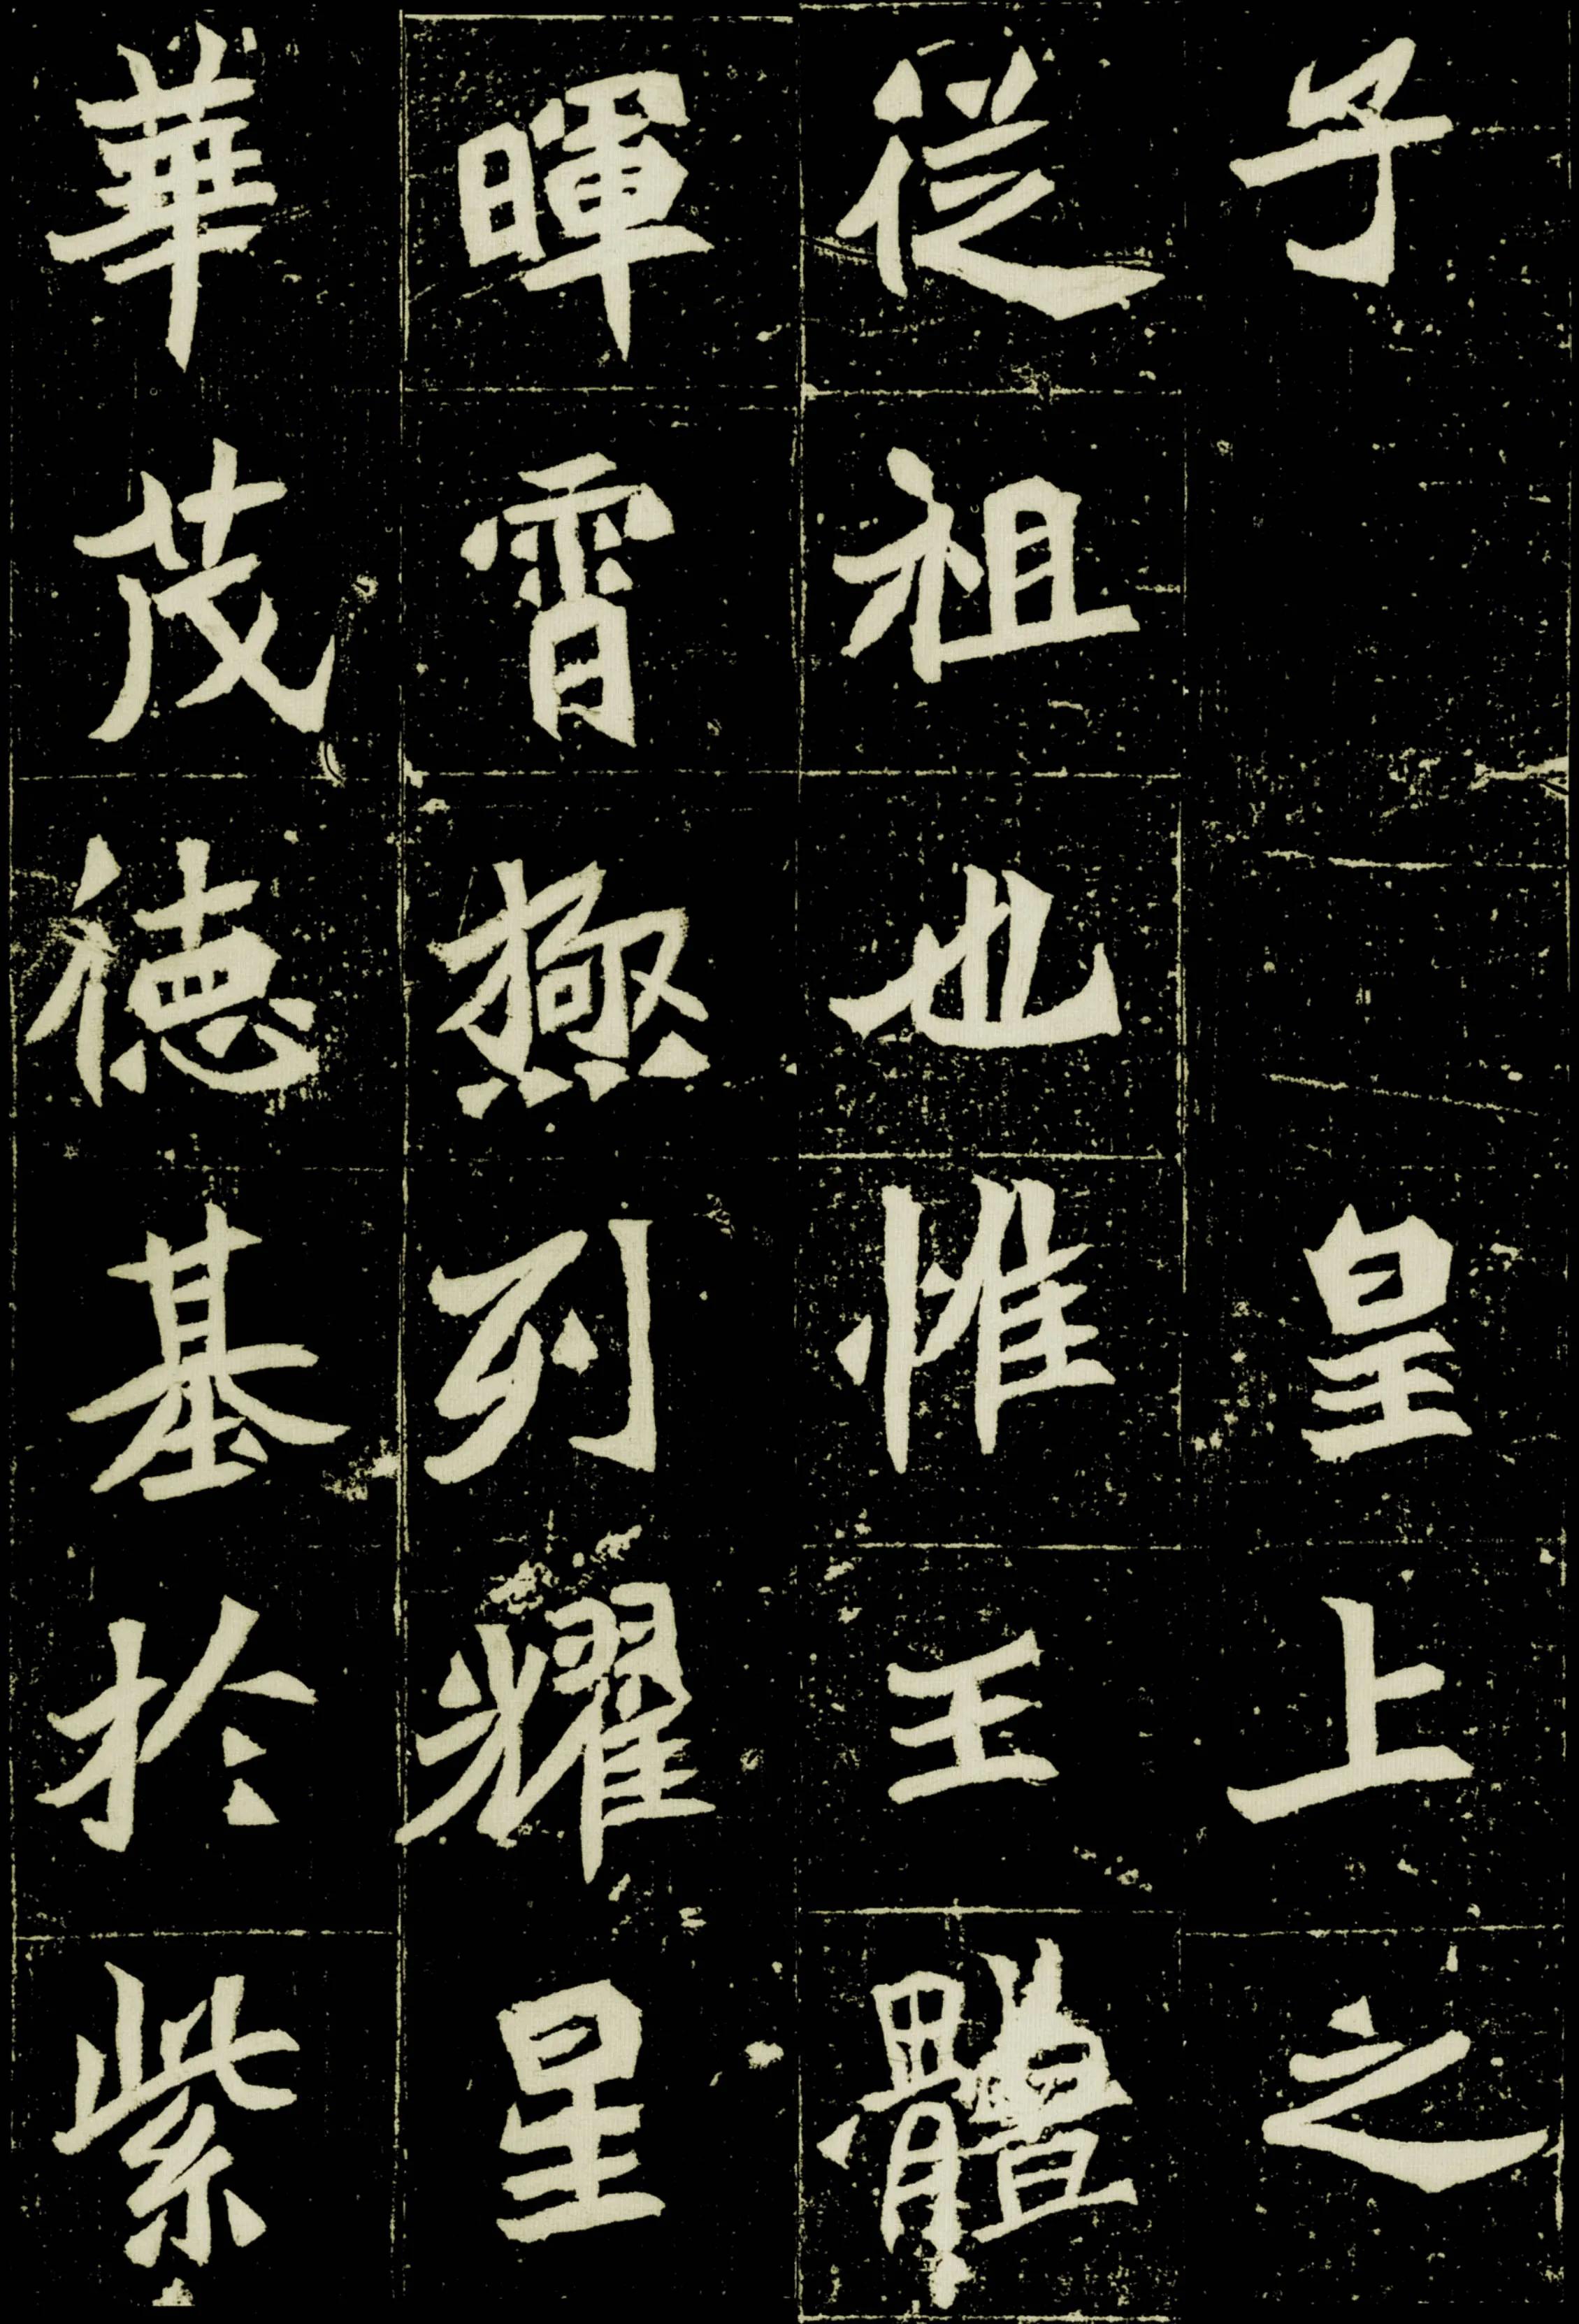 子皇上之
從祖也惟王體
暉霄極列耀星
華茂德基於紫